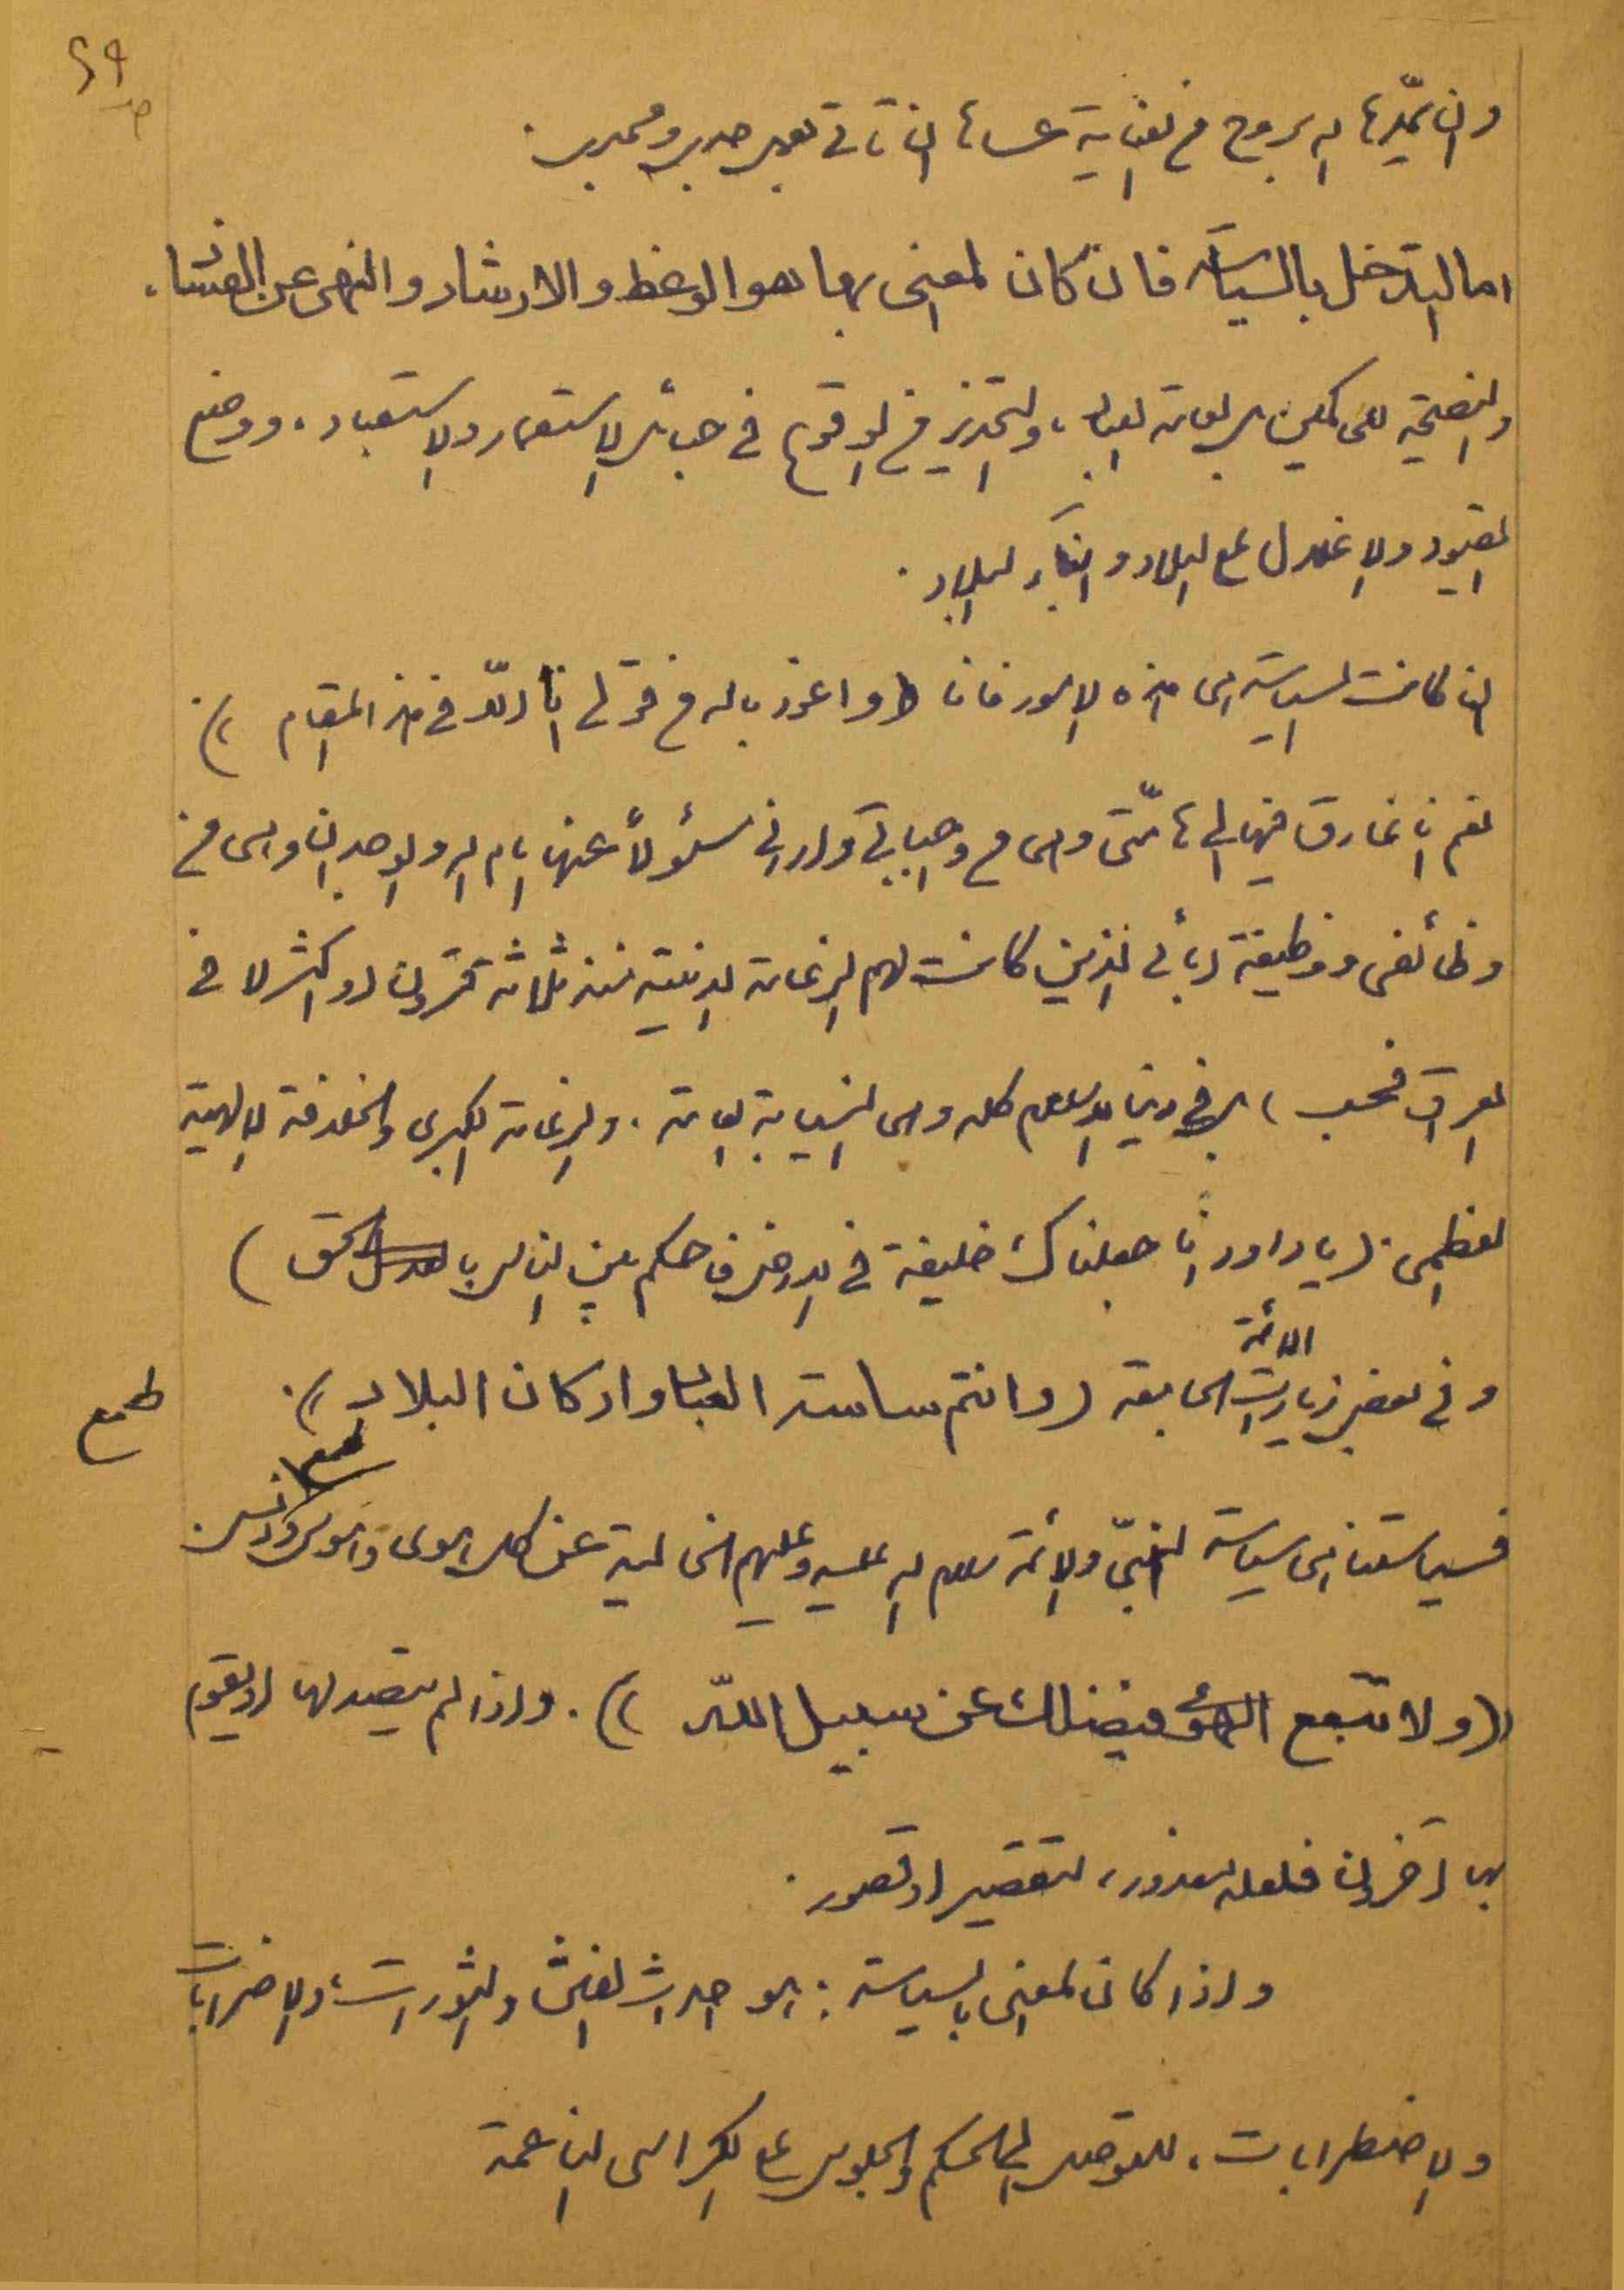 ص ٤٩
وان يمدّها الله بروح من العناية عساها ان تأتي بعمل جدي ومجدي .
اما التدخل بالسياسة فان كان المعنى بها هو الوعظ والارشاد والنهي عن الفساد،
والنصيحة للحاكمين بل لعامة العباد، والتحذير من الوقوع في حبائل الاستعمار والاستعباد، ووضع
القيود والاغلال على البلاد وابناء البلاد .
ان كانت السياسة هي هذه الامور فانا (واعوذ بالله من قولي انا الّا في هذا المقام ) .
نعم انا غارق فيها الى هامتي وهي من واجباتي واراني مسئولاً عنها امام الله والوجدان وهي من
وظائفي ووظيفة آبائي الذين كانت لهم الزعامة الدينية منذ ثلاثة قرون او اكثر لا في
العراق فحسب ، بل في دنيا الاسلام كله وهي النيابة العامة . والزعامة الكبرى والخلافة الالهية
العظمى . (يا داود انّا جعلناك خليفة في الارض فاحكم بين الناس بالحق )
وفي بعض زيارات الائمة الجامعة (وانتم ساسة العباد واركان البلاد ) .
طمع
فسياستنا هي سياسة النبيّ والأئمة سلام الله عليه وعليهم الخالية عن كل هوى وهوس وطمع ودنس .
((ولا تتبع الهوى فيضلك عن سبيل اللّه )) . واذا لم يتصد لها او يقوم
بها آخرون فلعله لعذور ، لتقصير او قصور .
واذا كان المعنى بالسياسة : هو احداث الفتن والثورات ، والاضرابات
والاضطرابات ، للتوصل الى الحكم والجلوس على الكراسي الناعمة